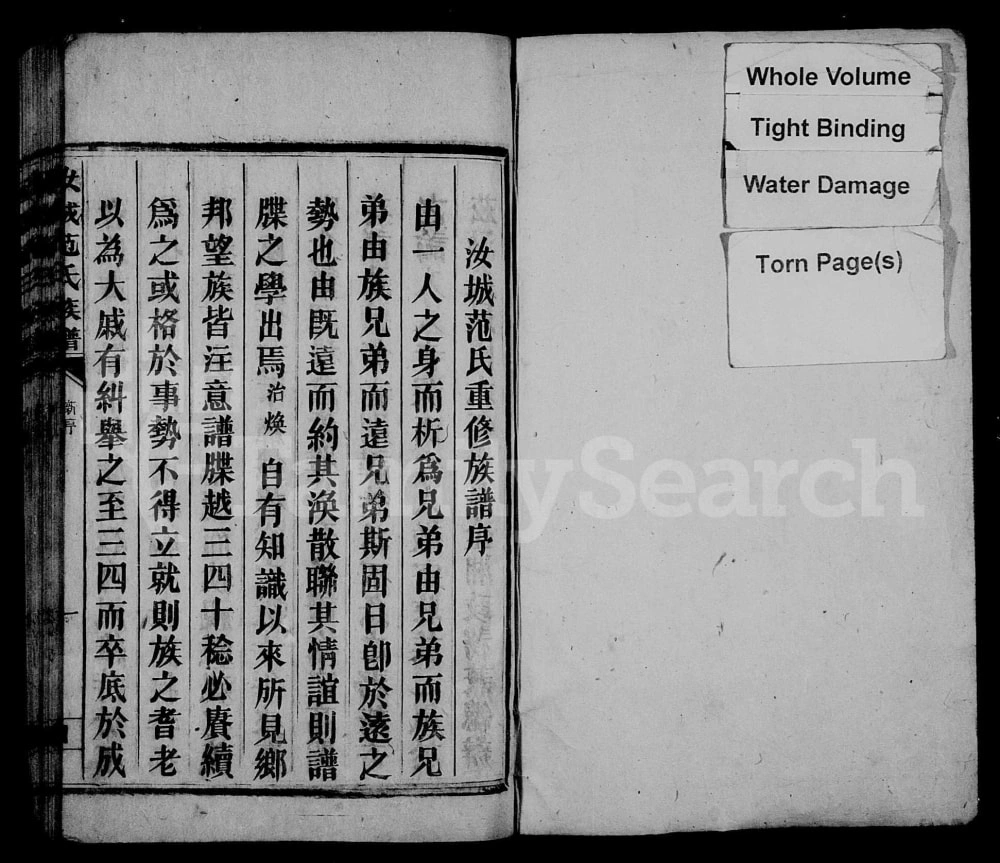 Whole Volume
Tight Binding
Water Damage
Torn Page(s)
汝城范氏重修族譜序
由一人之身而析爲兄弟由兄弟而族兄
弟由族兄弟而遠兄弟斯固日卽於遠之
勢也由旣遠而約其渙散聯其情誼則譜
牒之學出焉治煥自有知識以來所見鄉
邦望族皆注意譜牒越三四十稔必賡續
爲之或格於事勢不得立就則族之耆老
以為大戚有糾舉之至三四而卒底於成
汝城范氏族譜
新序
FamilySearch